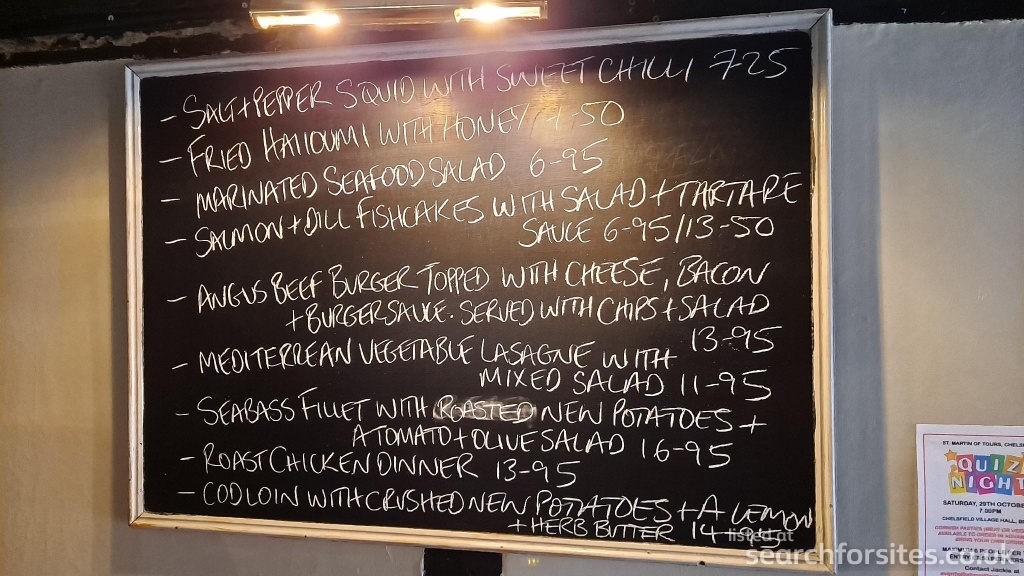 - SALT+PEPPER SQUID WITH SWEET CHILLI 7-25
- FRIED HALLOUMI WITH HONEY 7-50
- MARINATED SEAFOOD SALAD 6-95
- SALMON+DILL FISHCAKES WITH SALAD+TARTARE
SAUCE 6-95/13-50
- ANGUS BEEF BURGER TOPPED WITH CHEESE, BACON
+BURGER SAUCE. SERVED WITH CHIPS+SALAD
13-95
- MEDITERREAN VEGETABLE LASAGNE WITH
MIXED SALAD 11-95
- SEABASS FILLET WITH ROASTED NEW POTATOES +
A TOMATO+OLIVE SALAD 16-95
- ROAST CHICKEN DINNER 13-95
- COD LOIN WITH CRUSHED NEW POTATOES+A LEMON
+HERB BUTTER 14-
listed at
searchforsites.co.uk
ST. MARTIN OF TOURS, CHELS
QUIZ
NIGHT
SATURDAY, 29TH OCTOBE
7.00PM
CHELSFIELD VILLAGE HALL,
Contact Jackie at